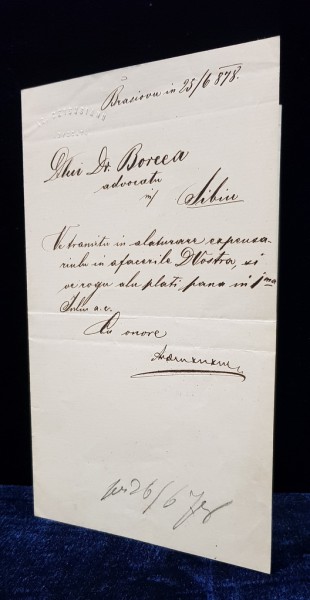 Brasiovu in 25/6 878.
Dlui Dr. Borcea
advocatu
in/ Sibiu
Ve tramitu in alaturare expensa-
riulu in afacerile DVostra, si
ve rogu alu plati, pana in 1ma
Iuliu a.c.
Cu onore
26/6